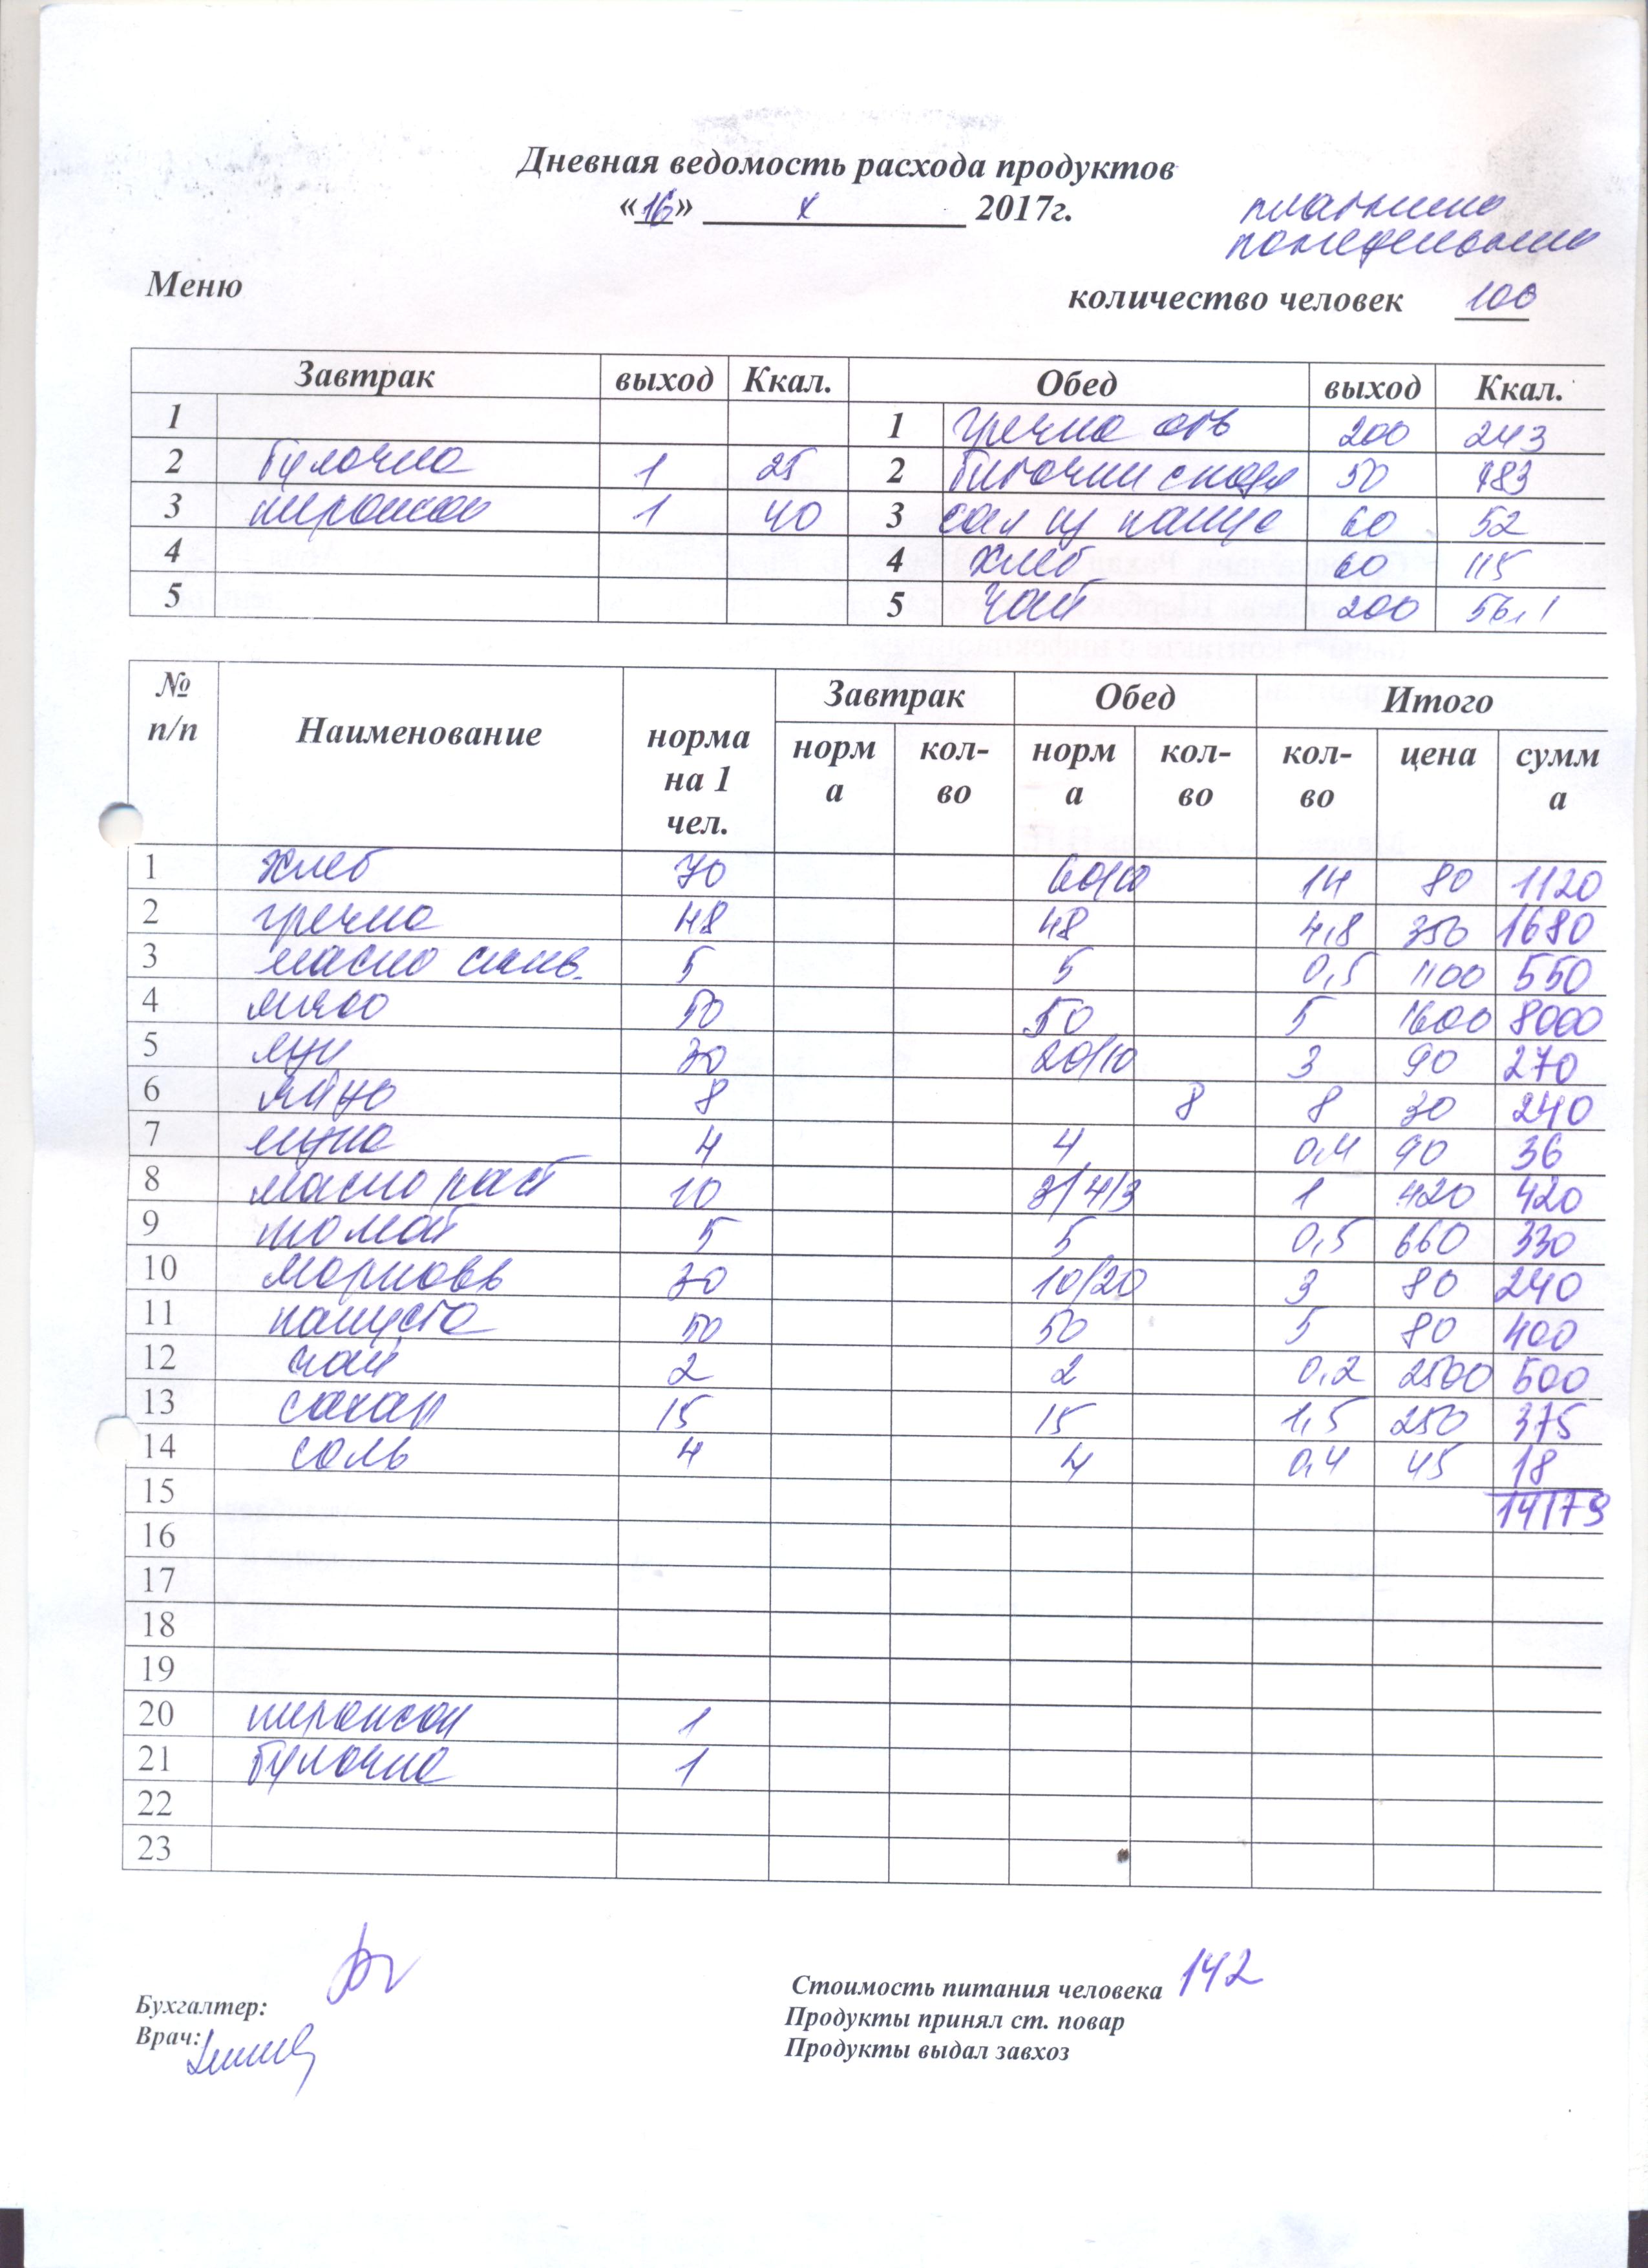 Дневная ведомость расхода продуктов
«16» X 2017г.
платники
понедельник
Меню количество человек 100
Завтрак выход Ккал. Обед выход Ккал.
1 1 гречка отв 200 243
2 булочка 1 25 2 биточки с подл 50 183
3 пирожок 1 40 3 сал из капус 60 52
4 4 хлеб 60 115
5 5 чай 200 56,1
№ п/п Наименование норма на 1 чел. Завтрак Обед Итого
норма кол-во норма кол-во кол-во цена сумма
1 хлеб 70 60/10 14 80 1120
2 гречка 48 48 4,8 350 1680
3 масло слив. 5 5 0,5 1100 550
4 мясо 50 50 5 1600 8000
5 лук 30 20/10 3 90 270
6 яйцо 8 8 8 30 240
7 мука 4 4 0,4 90 36
8 масло раст 10 3/4/3 1 420 420
9 томат 5 5 0,5 660 330
10 морковь 30 10/20 3 80 240
11 капуста 50 50 5 80 400
12 чай 2 2 0,2 2500 500
13 сахар 15 15 1,5 250 375
14 соль 4 4 0,4 45 18
15 14179
16
17
18
19
20 пирожок 1
21 булочка 1
22
23
Бухгалтер:
Врач:
Стоимость питания человека 142
Продукты принял ст. повар
Продукты выдал завхоз